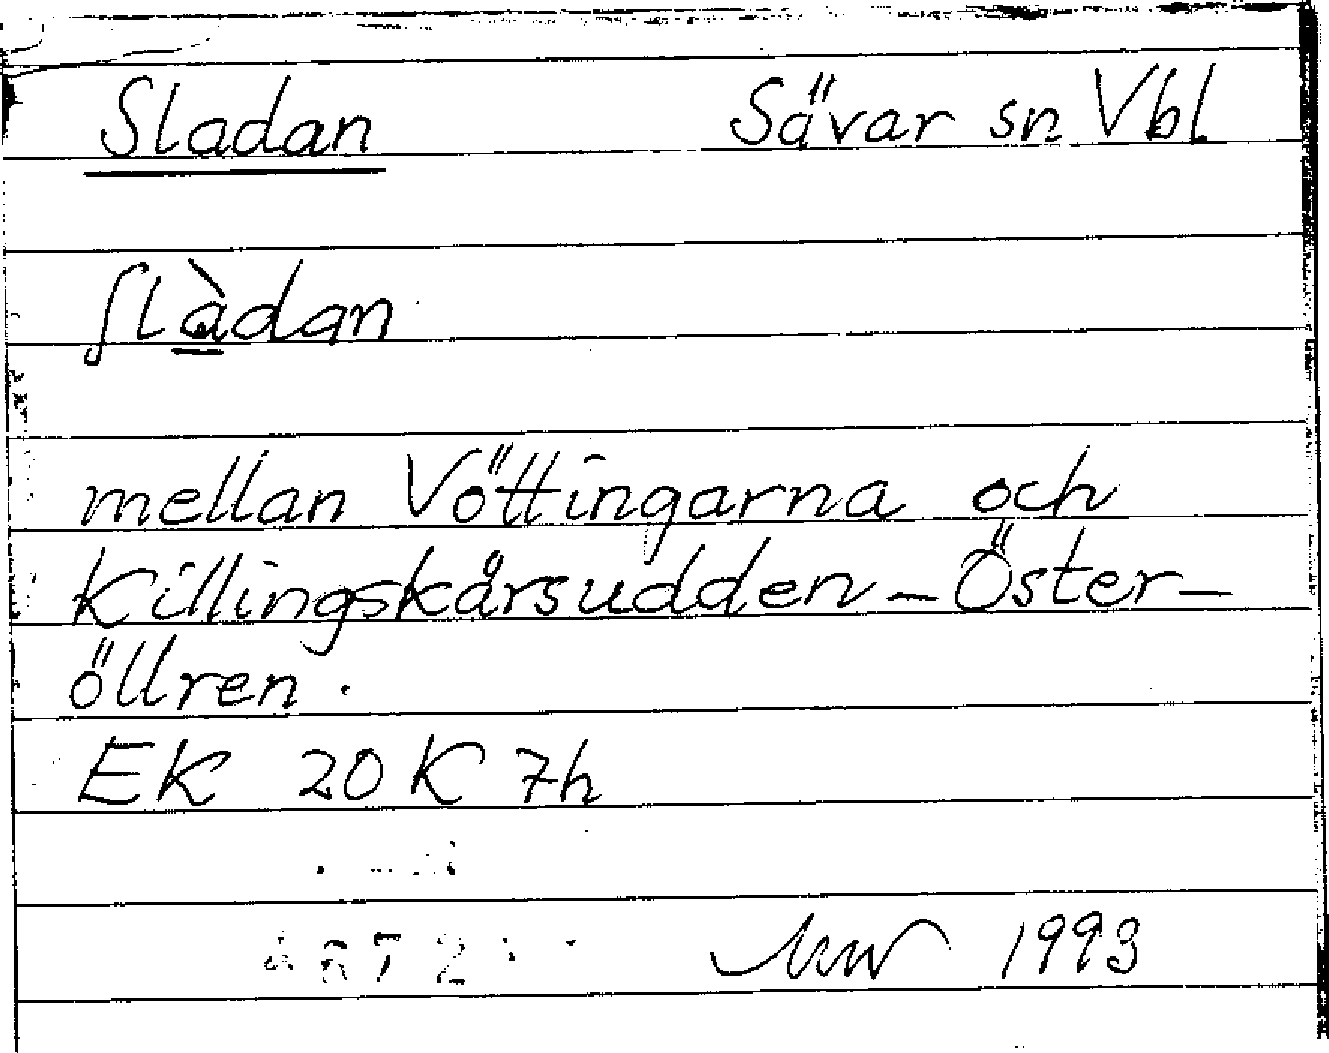 Sladan Sävar sn Vbl
ʃlàdan
mellan Vöttingarna och
Killingskärsudden - Öster-
öllren.
EK 20 K 7h
1993